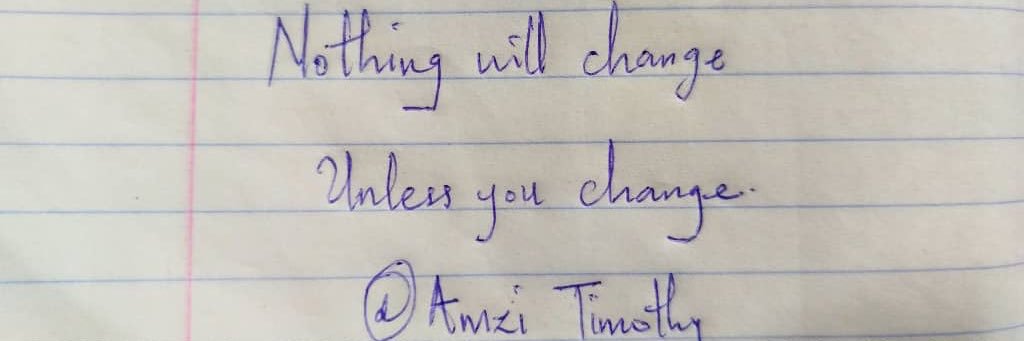 Nothing will change
Unless you change.
@Amzi Timothy